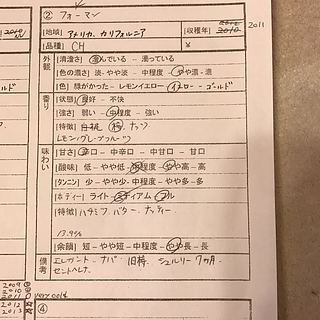 ② フォーマン
[地域] アメリカ、カリフォルニア [収穫年] 2010 2011
[品種] CH ¥
外観 [清澄さ] 澄んでいる ― 濁っている
[色の濃さ] 淡 - やや淡 - 中程度 - やや濃 - 濃
[色] 緑がかった - レモンイエロー - イエロー - ゴールド
香り [状態] 良好 - 不快
[強さ] 弱い - 中程度 - 強い
[特徴] 白桃 樽 ナッツ
レモン グレープフルーツ
味わい [甘さ] 辛口 - 中辛口 - 中甘口 - 甘口
[酸味] 低 - やや低 - 中程度 - やや高 - 高
[タンニン] 少 - やや少 - 中程度 - やや多 - 多
[ボディー] ライト - ミディアム - フル
[特徴] ハチミツ、バター、ナッティー
13.9%
[余韻] 短 - やや短 - 中程度 - やや長 - 長
備考 エレガント ナパ 旧樽 シュルリー 7ヵ月
セントヘレナ
2009
2010
2011 very cold
2012
2013
④